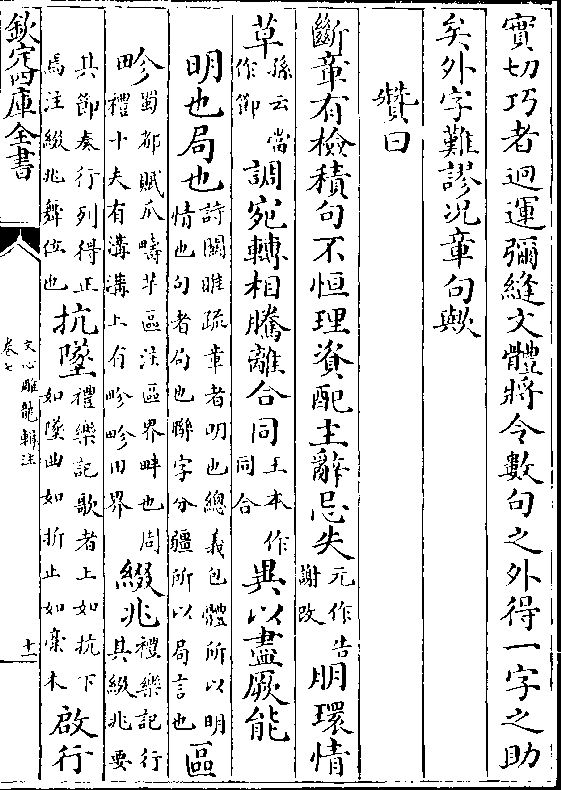 實切巧者迥運彌縫文體將令數句之外得一字之助
矣外字難謬况章句歟
贊曰
斷章有檢積句不恒理資配主辭忌失元作告謝改朋環情
草孫云當作節調宛轉相騰離合同王本作同合異以盡厥能
明也局也詩關雎疏章者明也總義包體所以明情也句者局也聯字分疆所以局言也區
畛蜀都賦瓜疇芋區注區界畔也周禮十夫有溝溝上有畛畛田界綴兆禮樂記行其綴兆要
其節奏行列得正焉注綴兆舞位也抗墜禮樂記歌者上如抗下如墜曲如折止如槀木啟行
欽定四庫全書
文心雕龍輯注
卷七
十一